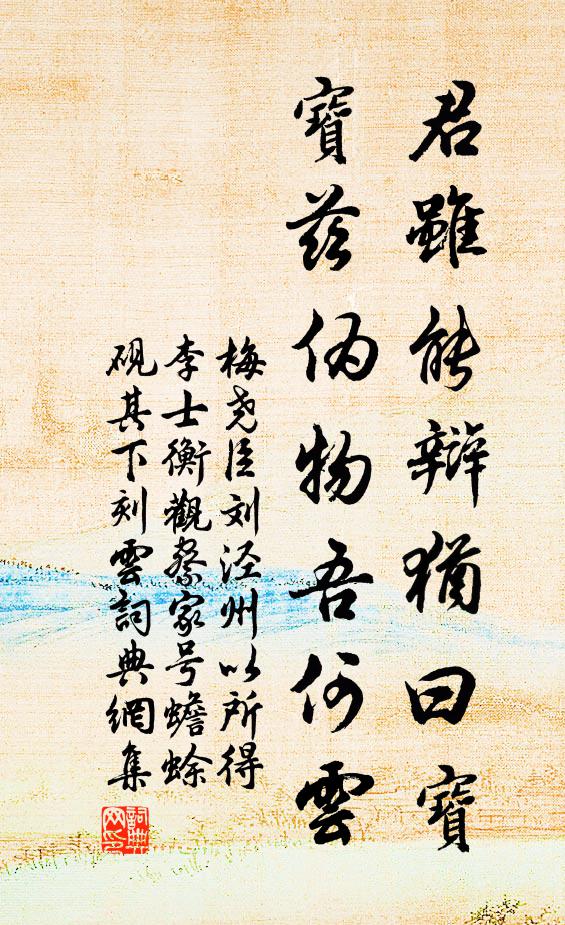 君雖能辯猶曰寶
寶茲偽物吾何雲
梅尧臣刘泾州以所得
李士衡觀察家号蟾蜍
硯其下刻雲詞典網集
詞典网印